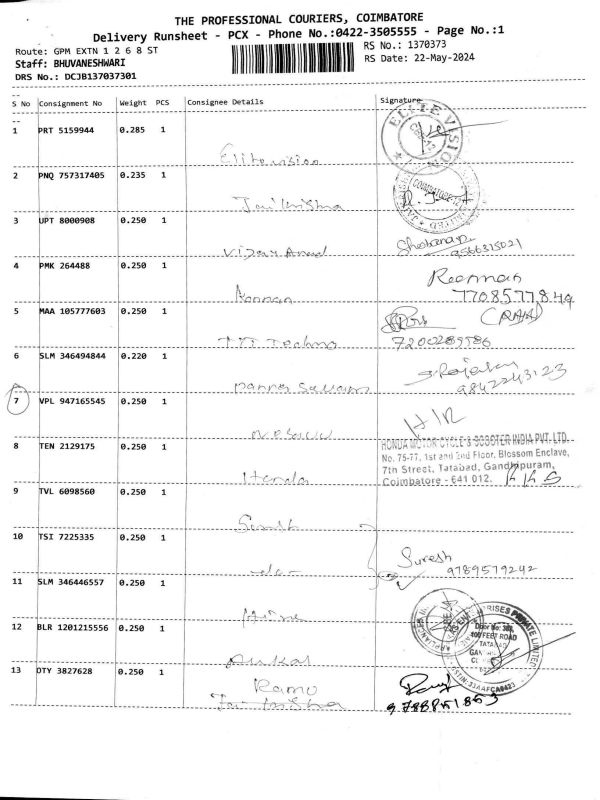 THE PROFESSIONAL COURIERS, COIMBATORE
Delivery Runsheet - PCX - Phone No.:0422-3505555 - Page No.:1
Route: GPM EXTN 1 2 6 8 ST
RS No.: 1370373
Staff: BHUVANESHWARI
RS Date: 22-May-2024
DRS No.: DCJB137037301
S No Consignment No Weight PCS Consignee Details Signature
1 PRT 5159944 0.285 1
ELITE VISION
Elitevision
2 PNQ 757317405 0.235 1
COIMBATORE-12
Jaikrishna
3 UPT 8000908 0.250 1
Vijay Anand
9566315021
4 PMK 264488 0.250 1
Rennan
7708577849
5 MAA 105777603 0.250 1
TTT Techno
7200289586
6 SLM 346494844 0.220 1
9842243123
7 VPL 947165545 0.250 1
8 TEN 2129175 0.250 1
HONDA MOTOR CYCLE & SCOOTER INDIA PVT. LTD.
No. 75-77, 1st and 2nd Floor, Blossom Enclave,
7th Street, Tatabad, Gandhipuram,
Coimbatore - 641 012.
Honda
9 TVL 6098560 0.250 1
Suresh
10 TSI 7225335 0.250 1
-do-
Suresh
9789579242
11 SLM 346446557 0.250 1
12 BLR 1201215556 0.250 1
PRISES PRIVATE LIMITED
Door No: 383,
100 FEET ROAD
13 DTY 3827628 0.250 1
Ramu
9788851853